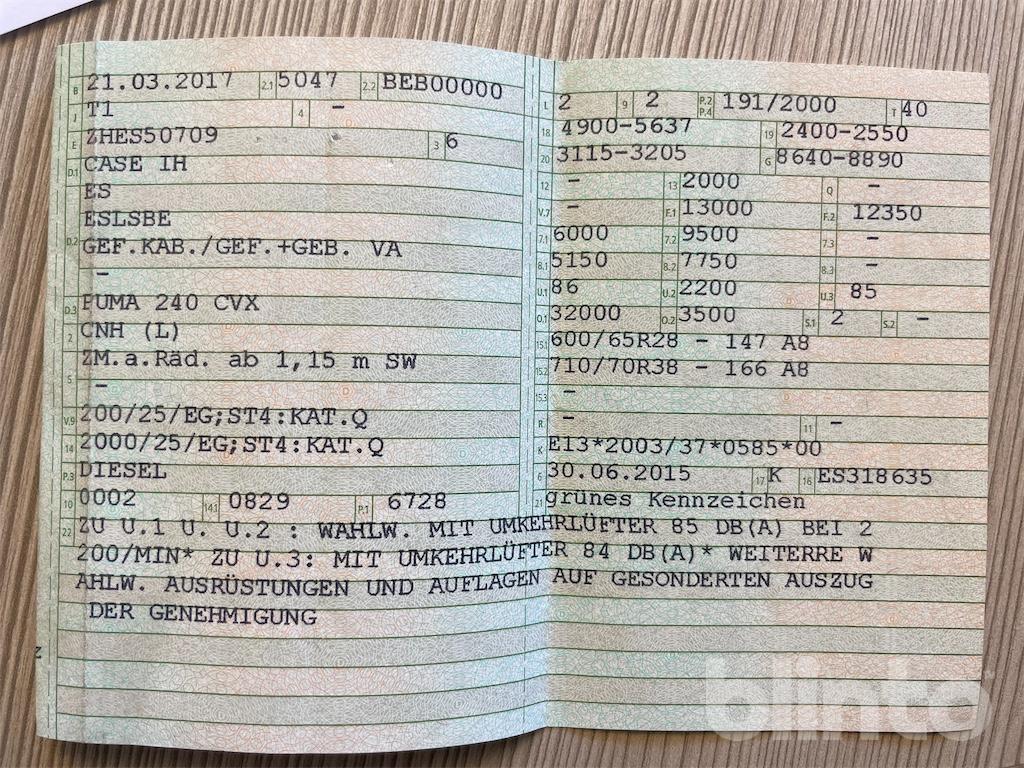 B 21.03.2017 2.1 5047 2.2 BEB00000
J T1 4 –
E ZHES50709 3 6
D.1 CASE IH
ES
ESLSBE
D.2 GEF.KAB./GEF.+GEB. VA
–
D.3 PUMA 240 CVX
2 CNH (L)
ZM.a.Räd. ab 1,15 m SW
5 –
V.9 200/25/EG;ST4:KAT.Q
14 2000/25/EG;ST4:KAT.Q
P.3 DIESEL
10 0002 14.1 0829 P.1 6728
L 2 9 2 P.2 P.4 191/2000 T 40
18 4900-5637 19 2400-2550
20 3115-3205 G 8640-8890
12 – 13 2000 Q –
V.7 – F.1 13000 F.2 12350
7.1 6000 7.2 9500 7.3 –
8.1 5150 8.2 7750 8.3 –
U.1 86 U.2 2200 U.3 85
O.1 32000 O.2 3500 S.1 2 S.2 –
15.1 600/65R28 – 147 A8
15.2 710/70R38 – 166 A8
15.3 –
R – 11 –
K E13*2003/37*0585*00
6 30.06.2015 17 K 16 ES318635
21 grünes Kennzeichen
22 ZU U.1 U. U.2 : WAHLW. MIT UMKEHRLÜFTER 85 DB(A) BEI 2
200/MIN* ZU U.3: MIT UMKEHRLÜFTER 84 DB(A)* WEITERRE W
AHLW. AUSRÜSTUNGEN UND AUFLAGEN AUF GESONDERTEN AUSZUG
DER GENEHMIGUNG
Z
blinto